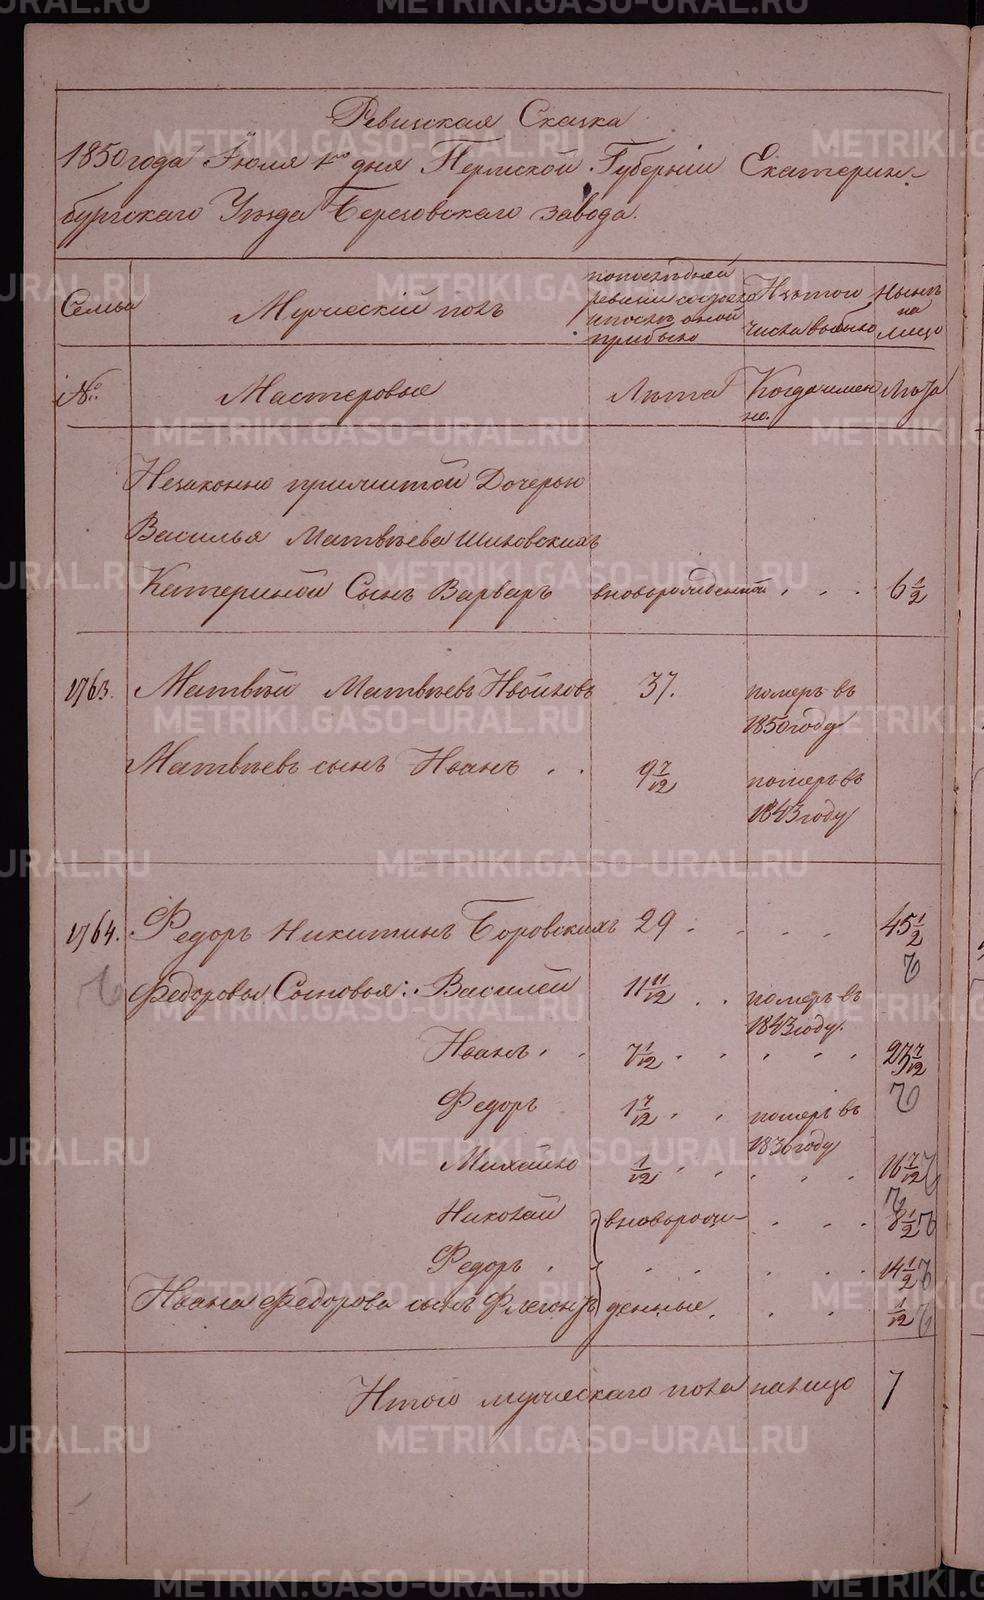 Ревизская Сказка
1850 года Июля 1го дня Пермской Губерніи Екатерин-
бургскаго Уѣзда Березовскаго завода.
Семьи
Мужескій полъ
по послѣдней
ревизіи состояло
и послѣ оной
прибыло
Изъ того
числа выбыло
Нынѣ
на
лицо
№.
Мастеровые
Лѣта
Когда имен
но.
Лѣта
Незаконно прижитой Дочерью
Василья Матвѣева
Катериной Сынъ Варваръ новорожденной . . . 6 1/2
1763. Матвѣй Матвѣевъ 37. померъ въ
1850 году
Матвѣевъ сынъ Иванъ . . 9 7/12 померъ въ
1843 году
1764. Федоръ Никитинъ Боровскихъ 29 . . . . 45 1/2
Федоровы Сыновья: Василей 11 11/12 . . померъ въ
1843 году.
Иванъ . . 7 1/12 . . . . . 23 7/12
Федоръ 1 7/12 . . померъ въ
1836 году
Михайло 1/12 . . . . . 16 7/12
Николай вноворож- . . . 8 1/2
Федоръ . . . . . . . 14 1/2
Ивана Федорова сынъ Флегонтъ денные . . . 1/12
Итого мужескаго пола налицо 7
METRIKI.GASO-URAL.RU